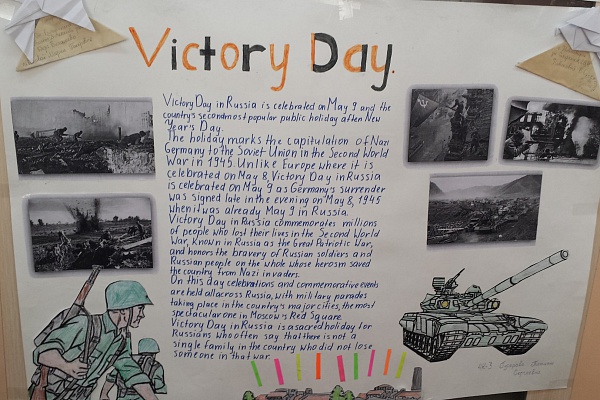 Victory Day.
Victory Day in Russia is celebrated on May 9 and the
country's second most popular public holiday after New
Year's Day.
The holiday marks the capitulation of Nazi
Germany to the Soviet Union in the Second World
War in 1945. Unlike Europe where it is
celebrated on May 8, Victory Day in Russia
is celebrated on May 9 as Germany's surrender
was signed late in the evening on May 8, 1945
when it was already May 9 in Russia.
Victory Day in Russia commemorates millions
of people who lost their lives in the Second World
War, known in Russia as the Great Patriotic War,
and honors the bravery of Russian soldiers and
Russian people on the whole whose heroism saved
the country from Nazi invaders.
On this day celebrations and commemorative events
are held all across Russia, with military parades
taking place in the country's major cities, the most
spectacular one in Moscow's Red Square.
Victory Day in Russia is a sacred holiday for
Russians who often say that there is not a
single family in the country who did not lose
someone in that war.